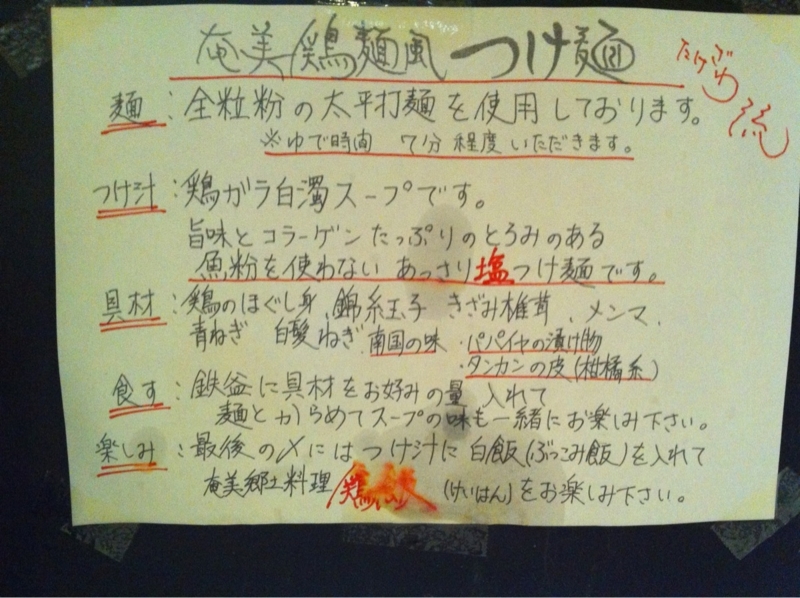 奄美鶏麺風つけ麺
たけざわ流
麺：全粒粉の太平打麺を使用しております。
※ゆで時間 7分程度いただきます。
つけ汁：鶏ガラ白濁スープです。
旨味とコラーゲンたっぷりのとろみのある
魚粉を使わない あっさり塩つけ麺です。
具材：鶏のほぐし身、錦糸玉子 きざみ椎茸、メンマ、
青ねぎ 白髪ねぎ 南国の味・パパイヤの漬け物
・タンカンの皮(柑橘系)
食す：鉄釜に具材をお好みの量 入れて
麺とからめてスープの味も一緒にお楽しみ下さい。
楽しみ：最後の〆にはつけ汁に白飯(ぶっこみ飯)を入れて
奄美郷土料理 鶏飯 (けいはん)をお楽しみ下さい。